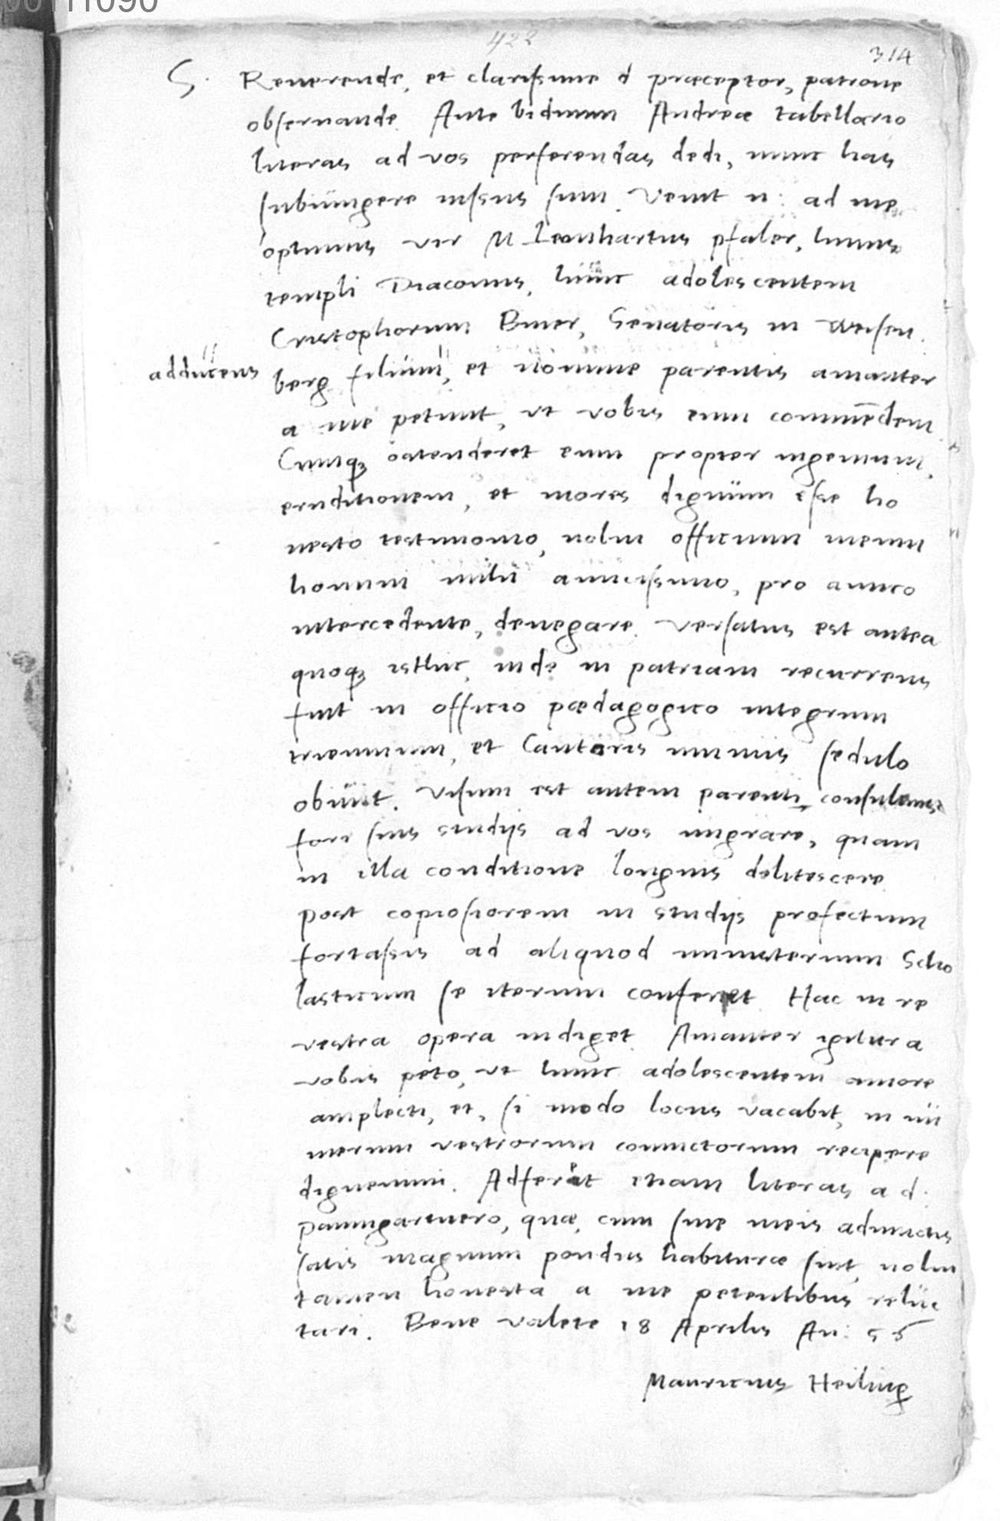 00111090
422
314
S. Reuerende, et clarissime d praeceptor, patrone
obseruande. Ante biduum Andreae tabellario
literas ad vos perferendas dedi, nunc has
subiungere iussus sum. Venit n: ad me
optimus vir M Leonhartus pfaler, huius
templi Diaconus, hunc adolescentem
Cristophorum Bmer, Senatoris in Weisen
adducens
berg filium, et nomine parentis amanter
a me petiit, vt vobis eum commendem.
Cumq; ostenderet eum propter ingenium,
eruditionem, et mores dignum esse ho
nesto testimonio, nolui officium meum
homini mihi amicissimo, pro amico
intercedente, denegare. Versatus est antea
quoq; isthic, inde in patriam recurrens
fuit in officio paedagogico integrum
triennium, et Cantoris munus sedulo
obiuit. Visum est autem parenti,
fori suis studijs ad vos migrare, quam
in illa conditione longius delitescere
post copiosiorem in studijs profectum
fortassis ad aliquod ministerium Scho
lasticum se iterum conferet. Hac in re
vestra opera indiget. Amanter igitur a
vobis peto, vt hunc adolescentem amore
amplecti, et, si modo locus vacabit, in nu
merum vestrorum conuictorum recipere
dignemini. Adferet etiam literas a d.
paumgartnero, quae, cum sine meis adiunctis
satis magnum pondus habiturae sint, nolui
tamen honesta a me petentibus reluc
tari. Bene valete 18 Aprilis An: 56
Mauricius Heiling